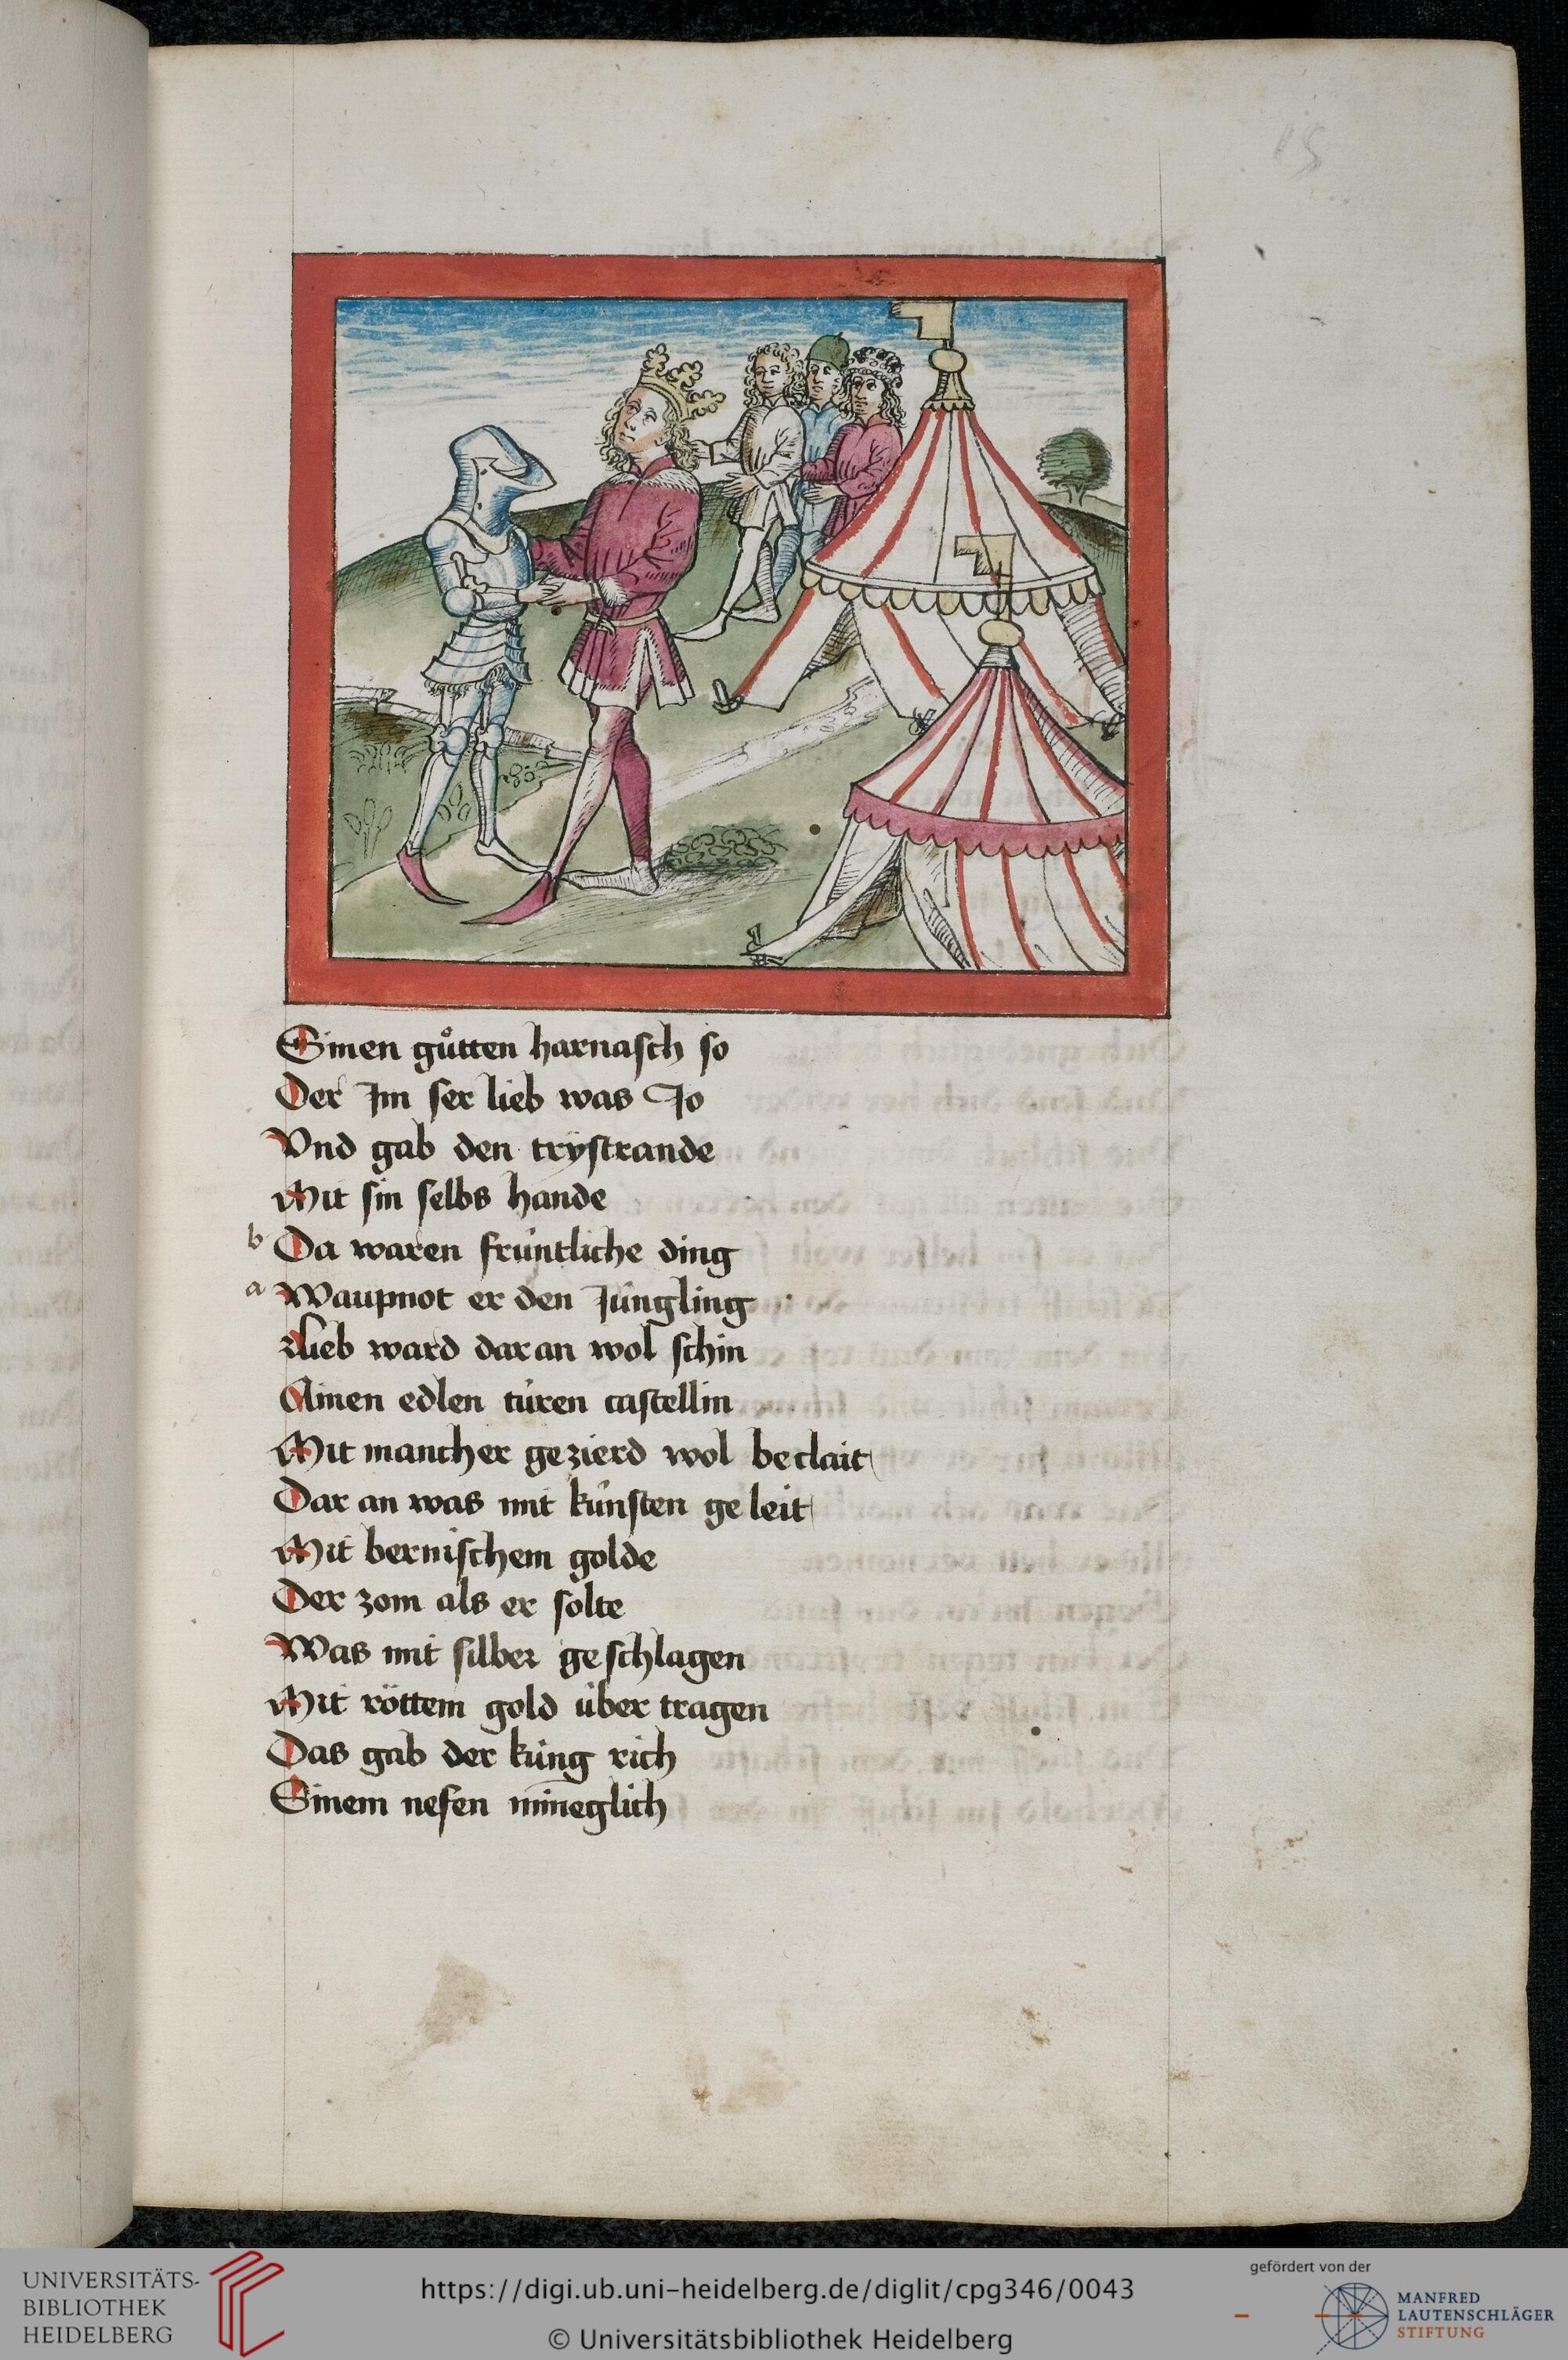 15
Sinen gůtten harnasch so
Der Im ser lieb was Jo
Vnd gab den trÿstrande
Mit sin selbs hande
b Da waren früntliche ding
a Waupnot er den Jüngling
lieb ward dar an wol schin
Ainen edlen türen castellin
Mit mancher gezierd wol beclait
Dar an was mit künsten geleit
Mit bernischem golde
Der zom als er solte
Was mit silber geschlagen
Mit röttem gold über tragen
Das gab der küng rich
Sinem nefen mīneglich
UNIVERSITÄTS-
BIBLIOTHEK
HEIDELBERG
https://digi.ub.uni-heidelberg.de/diglit/cpg346/0043
© Universitätsbibliothek Heidelberg
gefördert von der
MANFRED
LAUTENSCHLÄGER
STIFTUNG